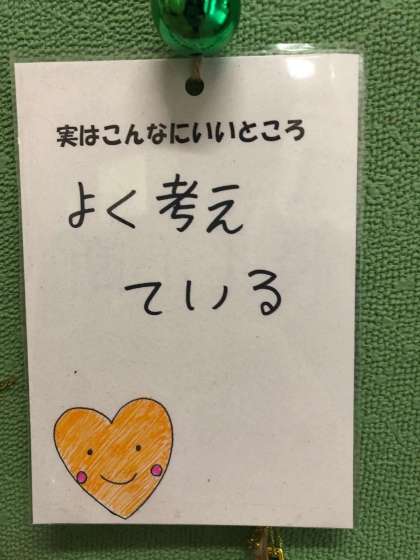 実はこんなにいいところ
よく考え
ている